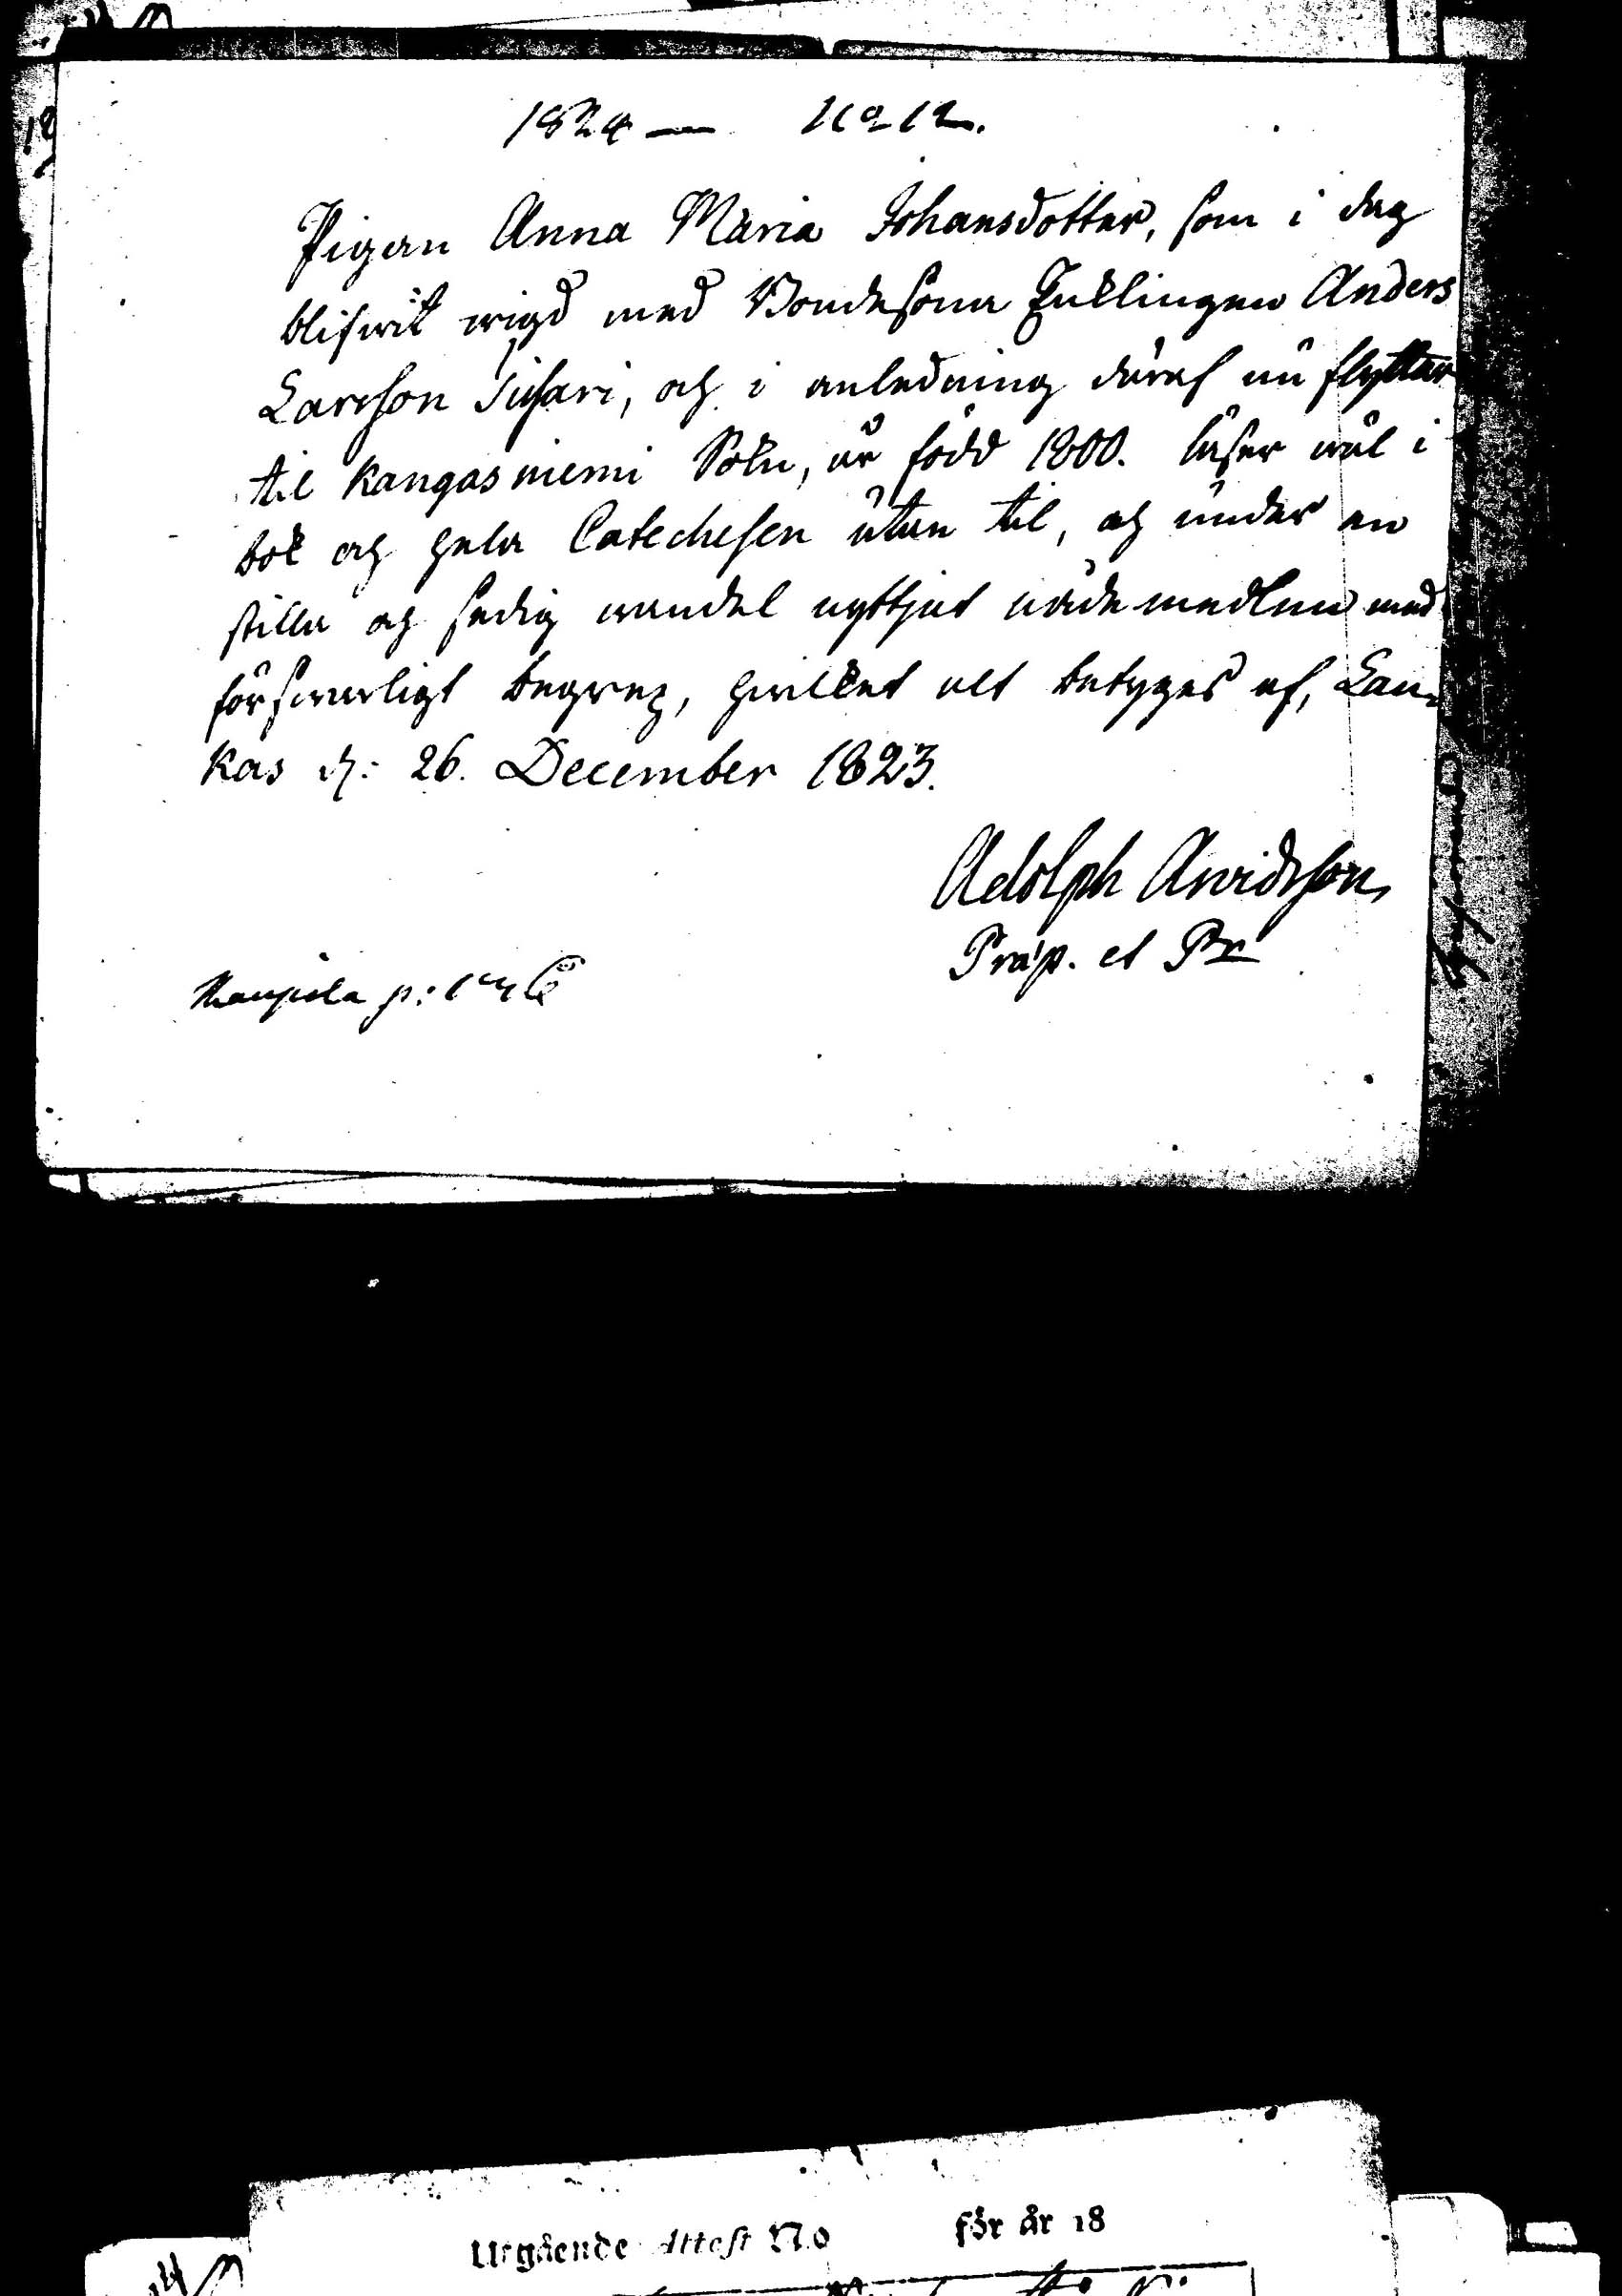 1824 — No 12.
Pigan Anna Maria Johansdotter, som i dag
blifwit wigd med Bondesonen Enklingen Anders
Larsson Siisari, och i anledning däraf nu flyttar
til Kangasniemi Sokn, är född 1800. läser wäl i
bok och hela Catechesen utan til, och under en
stilla och sedig wandel nyttjat nådemedlen med
förswarligt begrep, hwilket alt betyges af, Lau-
kas d: 26. December 1823.
Adolph Arwidsson,
Præp. et Pr
p:
Utgående Attest N:o för år 18